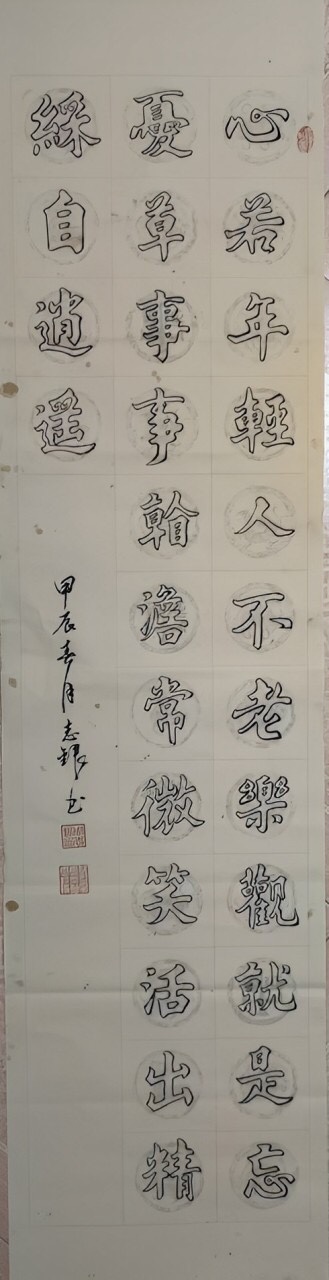 心若年輕人不老樂觀就是忘
憂草事事翰澹常微笑活出精
綵自逍遥
甲辰春月志银书